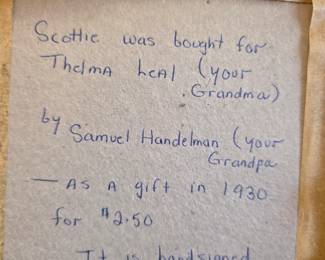 Scottie was bought for
Thelma Leal (your
Grandma)
by Samuel Handelman (your
Grandpa
— As A gift in 1930
for $2.50
It is handsigned